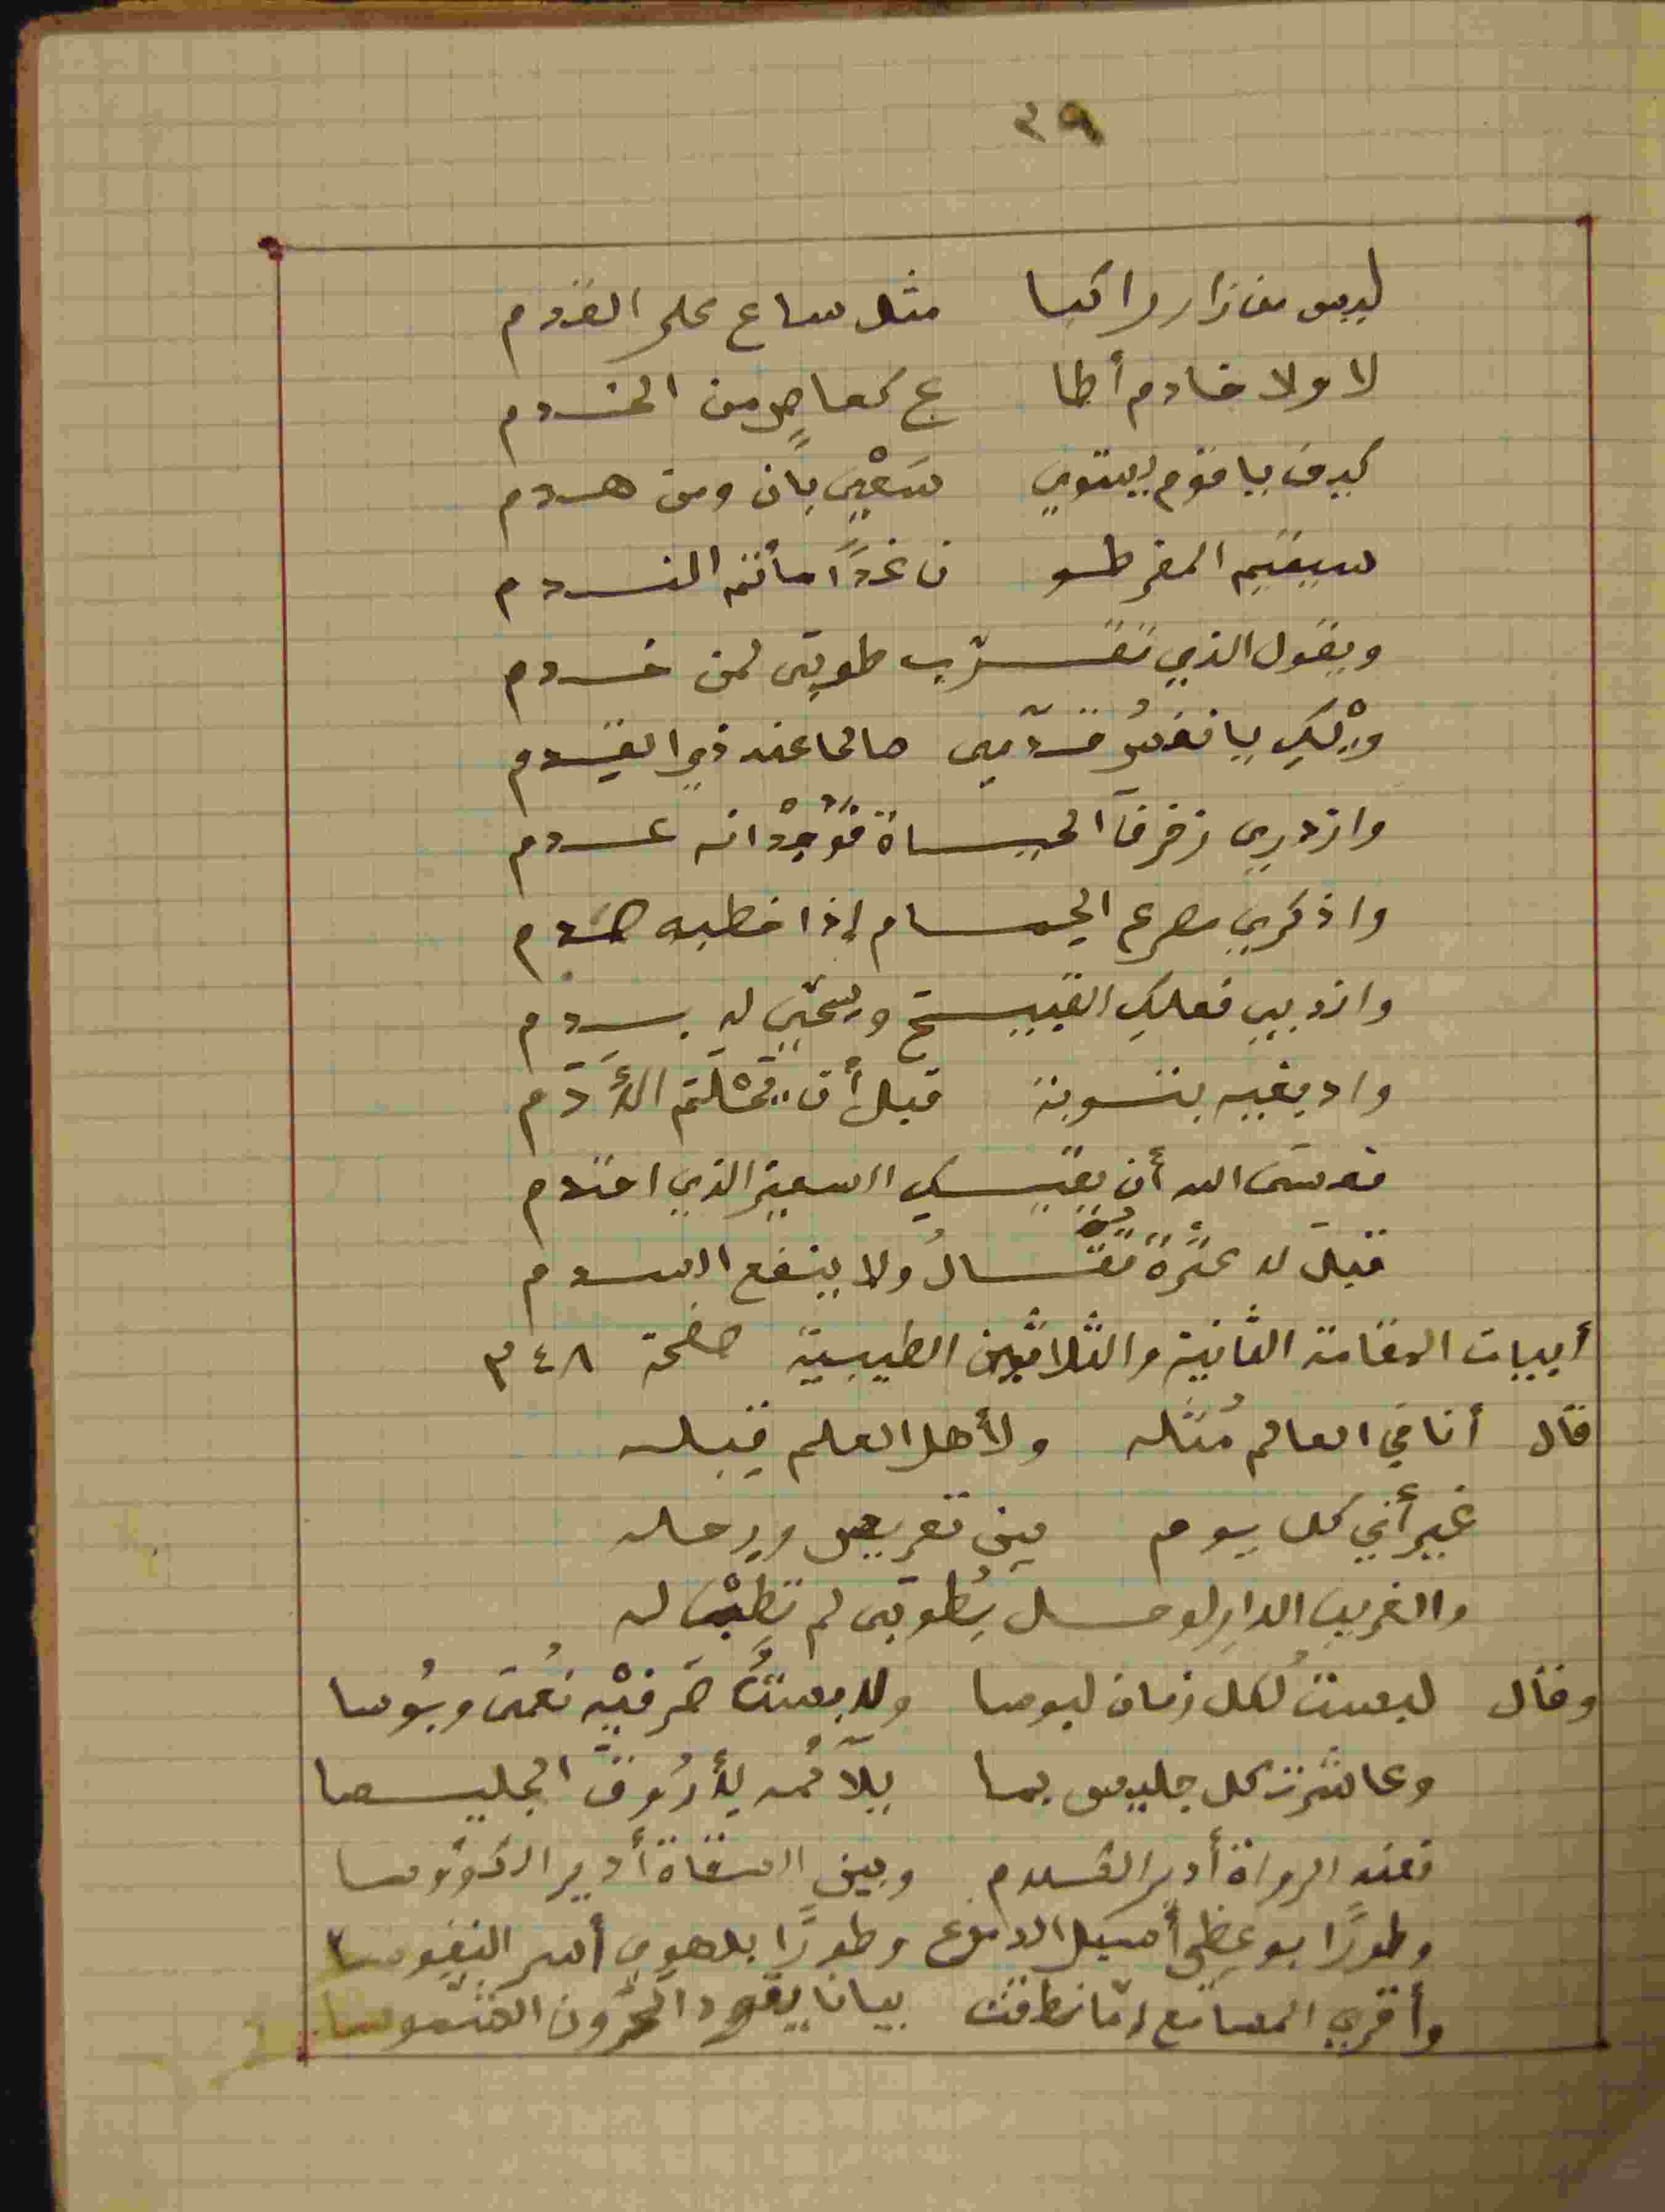 ٣٩
ليس من زار راكبا مثل ساع على القدم
لا ولا خادم أطا ع كعاصٍ من الخدم
كيف يا قوم يستوي سَعْيُ بانٍ ومن هدم
سيقيم المفرطو ن غدًا مأتم الندم
ويقول الذي تقرّب طوبى لمن خدم
ويْكِ يا نفسُ قدّمي صالحا عند ذي القدم
وازدري زخرف الحياة فوُجْدانه عدم
واذكري مصرع الحمام إذا خطبه صدم
واندبي فعلكِ القبيح وسحّي له بدم
وادبغيه بتوبة قبل أن يَحْلَم الأَدَم
فعسى الله أن يقيكِ السعير الذي احتدم
قبل لا عثرةٌ تُقالُ ولا ينفع السدم
أبيات المقامة الثانية والثلاثين الطيبية صفحة ٣٤٨
قال أنا في العالم مُثْله ولأهل العلم قِبله
غير أني كل يوم بين تعريس ورحله
والغريب الدارِ لو حل بطوبى لم تَطِبْ له
وقال لبستُ لكل زمان لبوسا ولابستُ صَرفيْه نُعمى وبُوسا
وعاشرت كل جليس بما يلآئمه لأرُوقَ الجليسا
فعند الرواة أدير الكلام وبين السقاة أدير الكؤوسا
وطورًا بوعظي أسيل الدموع وطورًا بلهوي أسر النفوسا
وأقري المسامع إمّا نطقت بيانا يقود الحَرُون الشموسا